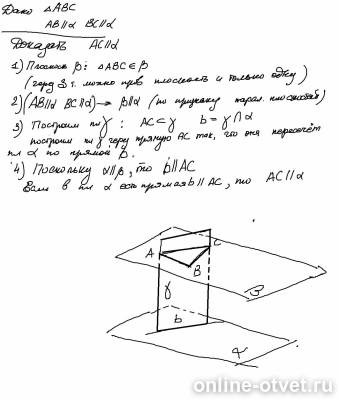 Дано △ABC
AB∥α BC∥α
Доказать AC∥α
1) Плоскость β: △ABC∈β
(через 3 т. можно пров плоскость и только одну)
2) (AB∥α BC∥α) → β∥α (по признаку парал. плоскостей)
3) Построим пл γ : AC⊂γ b=γ∩α
построим пл γ через прямую AC так, что она пересечёт
пл α по прямой b.
4) Поскольку α∥β, то b∥AC
Если в пл α есть прямая b∥AC, то AC∥α
A
C
B
β
γ
b
α
online-otvet.ru